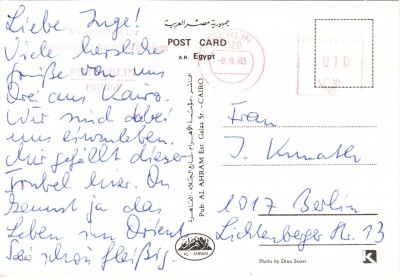 Liebe Inge!
Viele herzliche
Grüße von uns
drei aus Kairo.
Wir sind dabei
uns einzuleben.
Mir gefällt dieser
Trubel hier. Du
kennst ja das
Leben im Orient
Sei schön fleißig.
جمهورية مصر العربية
POST CARD
A.R. Egypt
BERLIN
1020
010
Pub. AL AHRAM Est. Galaa St. - CAIRO
AL - AHRAM
Frau
J.
1017 Berlin
Lichtenberger Str. 13
Photo by Dino Sassi
K